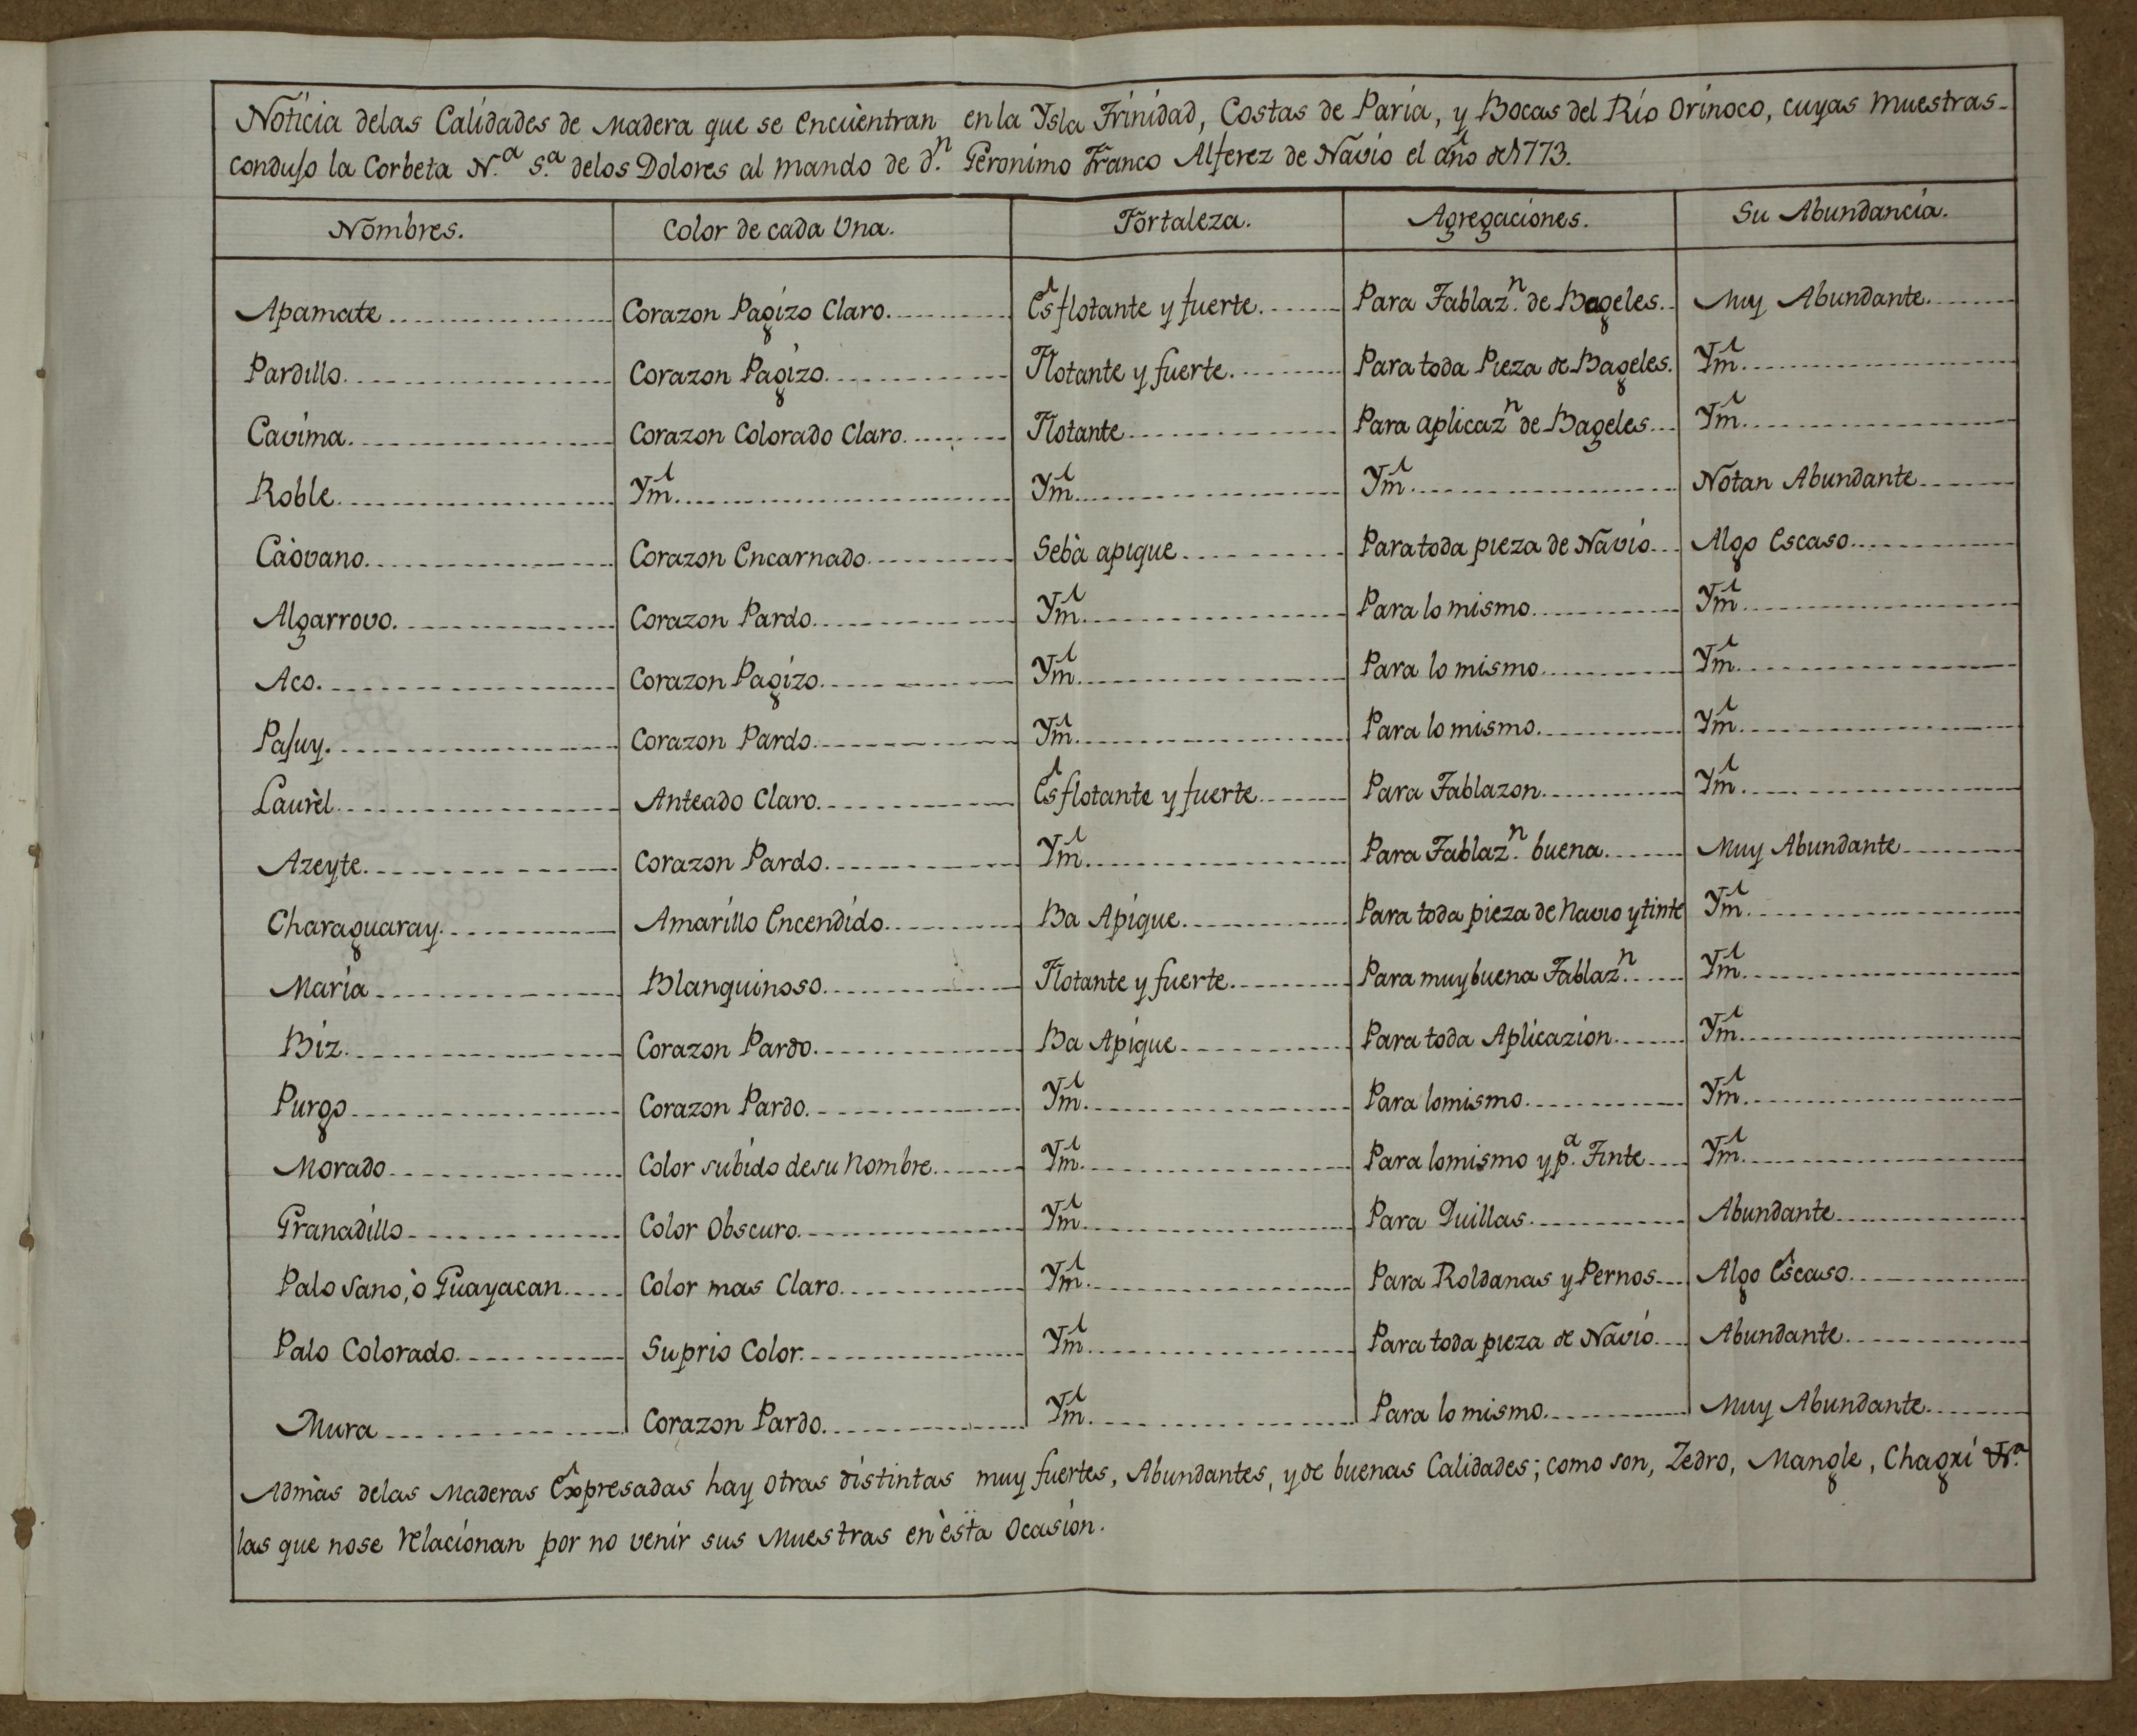 Noticia delas Calidades de Madera que se encuèntran en la Ysla Trinidad, Costas de Paria, y Bocas del Rio Orinoco, cuyas muestras-
conduso la Corbeta N.ª S.ª delos Dolores al mando de d.n Geronimo Franco Alferez de Navio el año de 1773.
Nombres. Color de cada Una. Fortaleza. Agregaciones. Su Abundancia.
Apamate Corazon Pagizo Claro. Es flotante y fuerte. Para Tablaz.n de Bageles. Muy Abundante
Pardillo. Corazon Pagizo. Flotante y fuerte. Para toda Pieza de Bageles. Ym.
Cavima. Corazon Colorado Claro. Flotante Para aplicaz.n de Bageles Ym.
Roble Ym. Ym. Ym. Notan Abundante
Caòvano. Corazon Encarnado. Sebà apique Para toda pieza de Navio Algo Escaso
Algarrovo. Corazon Pardo. Ym. Para lo mismo. Ym.
Aco. Corazon Pagizo. Ym. Para lo mismo. Ym.
Pasuy. Corazon Pardo. Ym. Para lo mismo. Ym.
Laurèl Anteado Claro. Es flotante y fuerte Para Tablazon. Ym.
Azeyte. Corazon Pardo. Ym. Para Tablaz.n buena. Muy Abundante
Charaguaray. Amarillo Encendido. Ba Apique. Para toda pieza de Navio y tinte Ym.
Maria Blanquinoso. Flotante y fuerte. Para muy buena Tablaz.n Ym.
Biz. Corazon Pardo. Ba Apique Para toda Aplicazion Ym.
Purgo Corazon Pardo. Ym. Para lomismo Ym.
Morado Color subido desu Nombre. Ym. Para lomismo y p.ª Tinte Ym.
Granadillo Color Obscuro. Ym. Para Quillas. Abundante
Palo Sano, ò Guayacan. Color mas Claro. Ym. Para Roldanas y Pernos Algo Escaso.
Palo Colorado. Suprio Color. Ym. Para toda pieza de Navio Abundante
Mura Corazon Pardo. Ym. Para lo mismo. Muy Abundante
Admàs delas Maderas Expresadas hay otras distintas muy fuertes, Abundantes, y de buenas Calidades; como son, Zedro, Mangle, Chagxi &.ª
las que nose relacionan por no venir sus Muestras en èsta Ocasion.